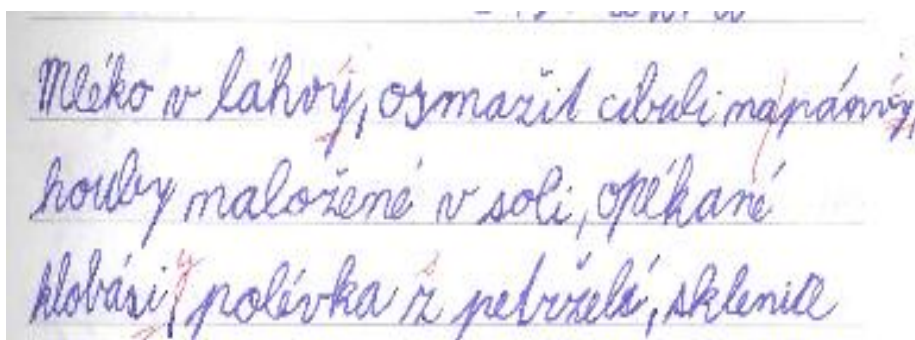 Mléko v láhvý, osmažit cibuli napánvý,
houby naložené v soli, opékané
klobási, polévka z petrželí, sklenice